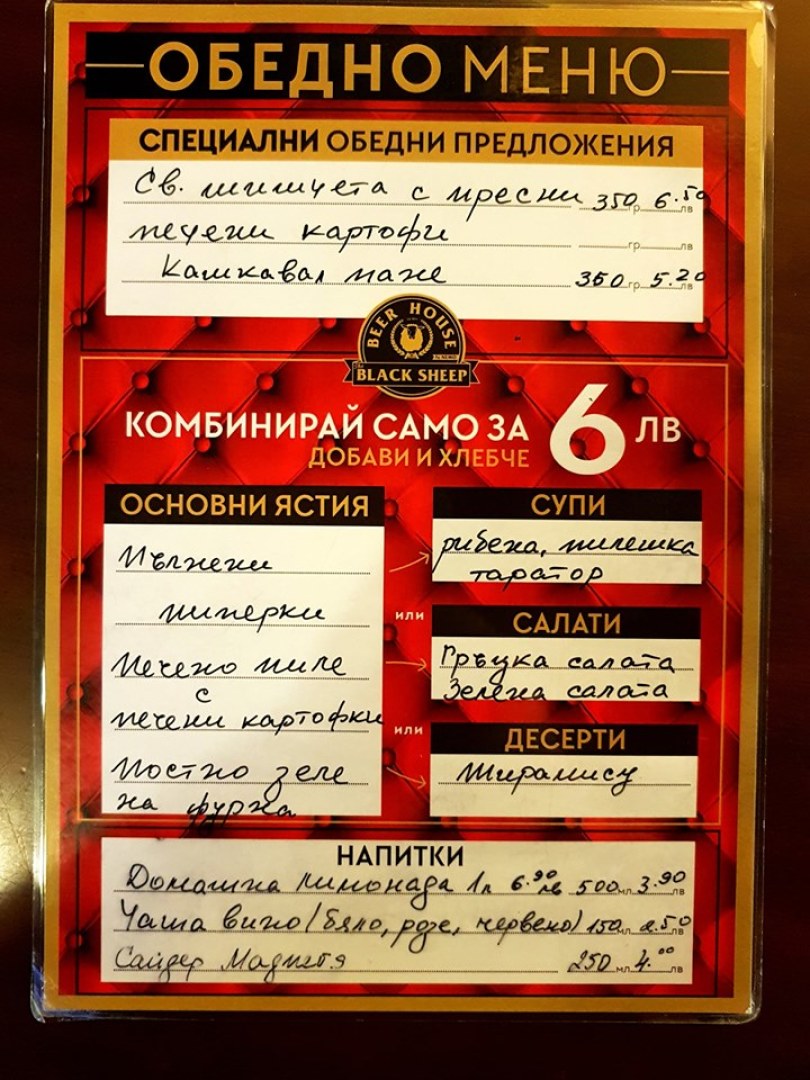 ОБЕДНО МЕНЮ
СПЕЦИАЛНИ ОБЕДНИ ПРЕДЛОЖЕНИЯ
Св. шишчета с пресни 350 гр 6.50 лв
печени картофи гр лв
Кашкавал пане 350 гр 5.20 лв
BEER HOUSE
The BLACK SHEEP
КОМБИНИРАЙ САМО ЗА 6 ЛВ
ДОБАВИ И ХЛЕБЧЕ
ОСНОВНИ ЯСТИЯ
Пълнени
пиперки
Печено пиле
с
печени картофки
Постно зеле
на фурна
или
или
СУПИ
рибена, пилешка
таратор
САЛАТИ
Гръцка салата
Зелена салата
ДЕСЕРТИ
Тирамису
НАПИТКИ
Домашна лимонада 1л 6.90 лв 500 мл 3.90 лв
Чаша вино (бяло, розе, червено) 150 мл 2.50 лв
Сайдер Магнетя 250 мл 4.00 лв